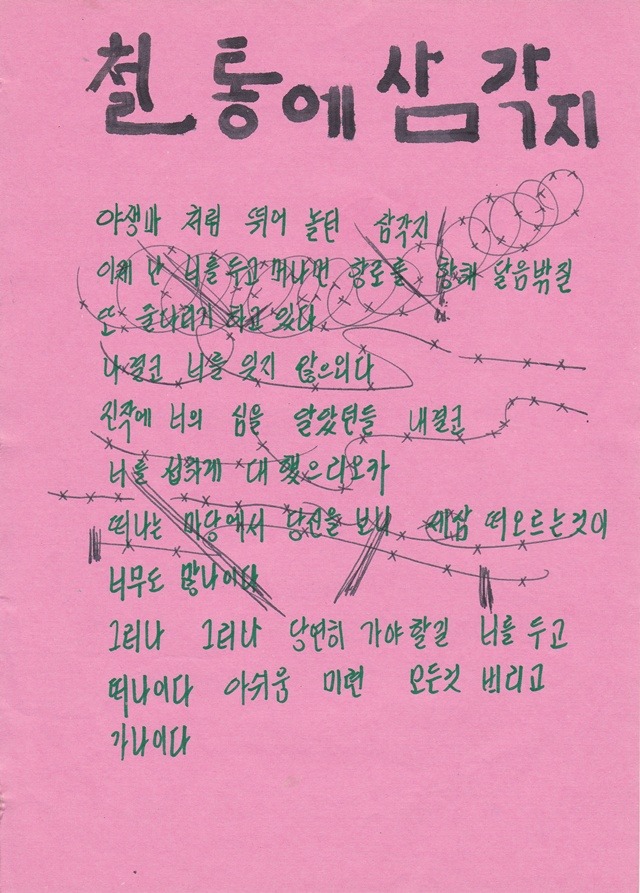 철통에 삼각지
야생마 처럼 뛰어 놀던 삼각지
이제 난 너를 두고 떠나면 항로를 향해 달음밖질
또 줄다리기 하고 있다
나 결코 너를 잊지 않으외다
진작에 너의 심을 알았던들 내결코
너를 섭하게 대했으리오카
떠나는 마당에서 당신을 보니 새삼 떠오르는것이
너무도 많나이다
그러나 그러나 당연히 가야할길 너를 두고
떠나이다 아쉬움 미련 모든것 버리고
가나이다